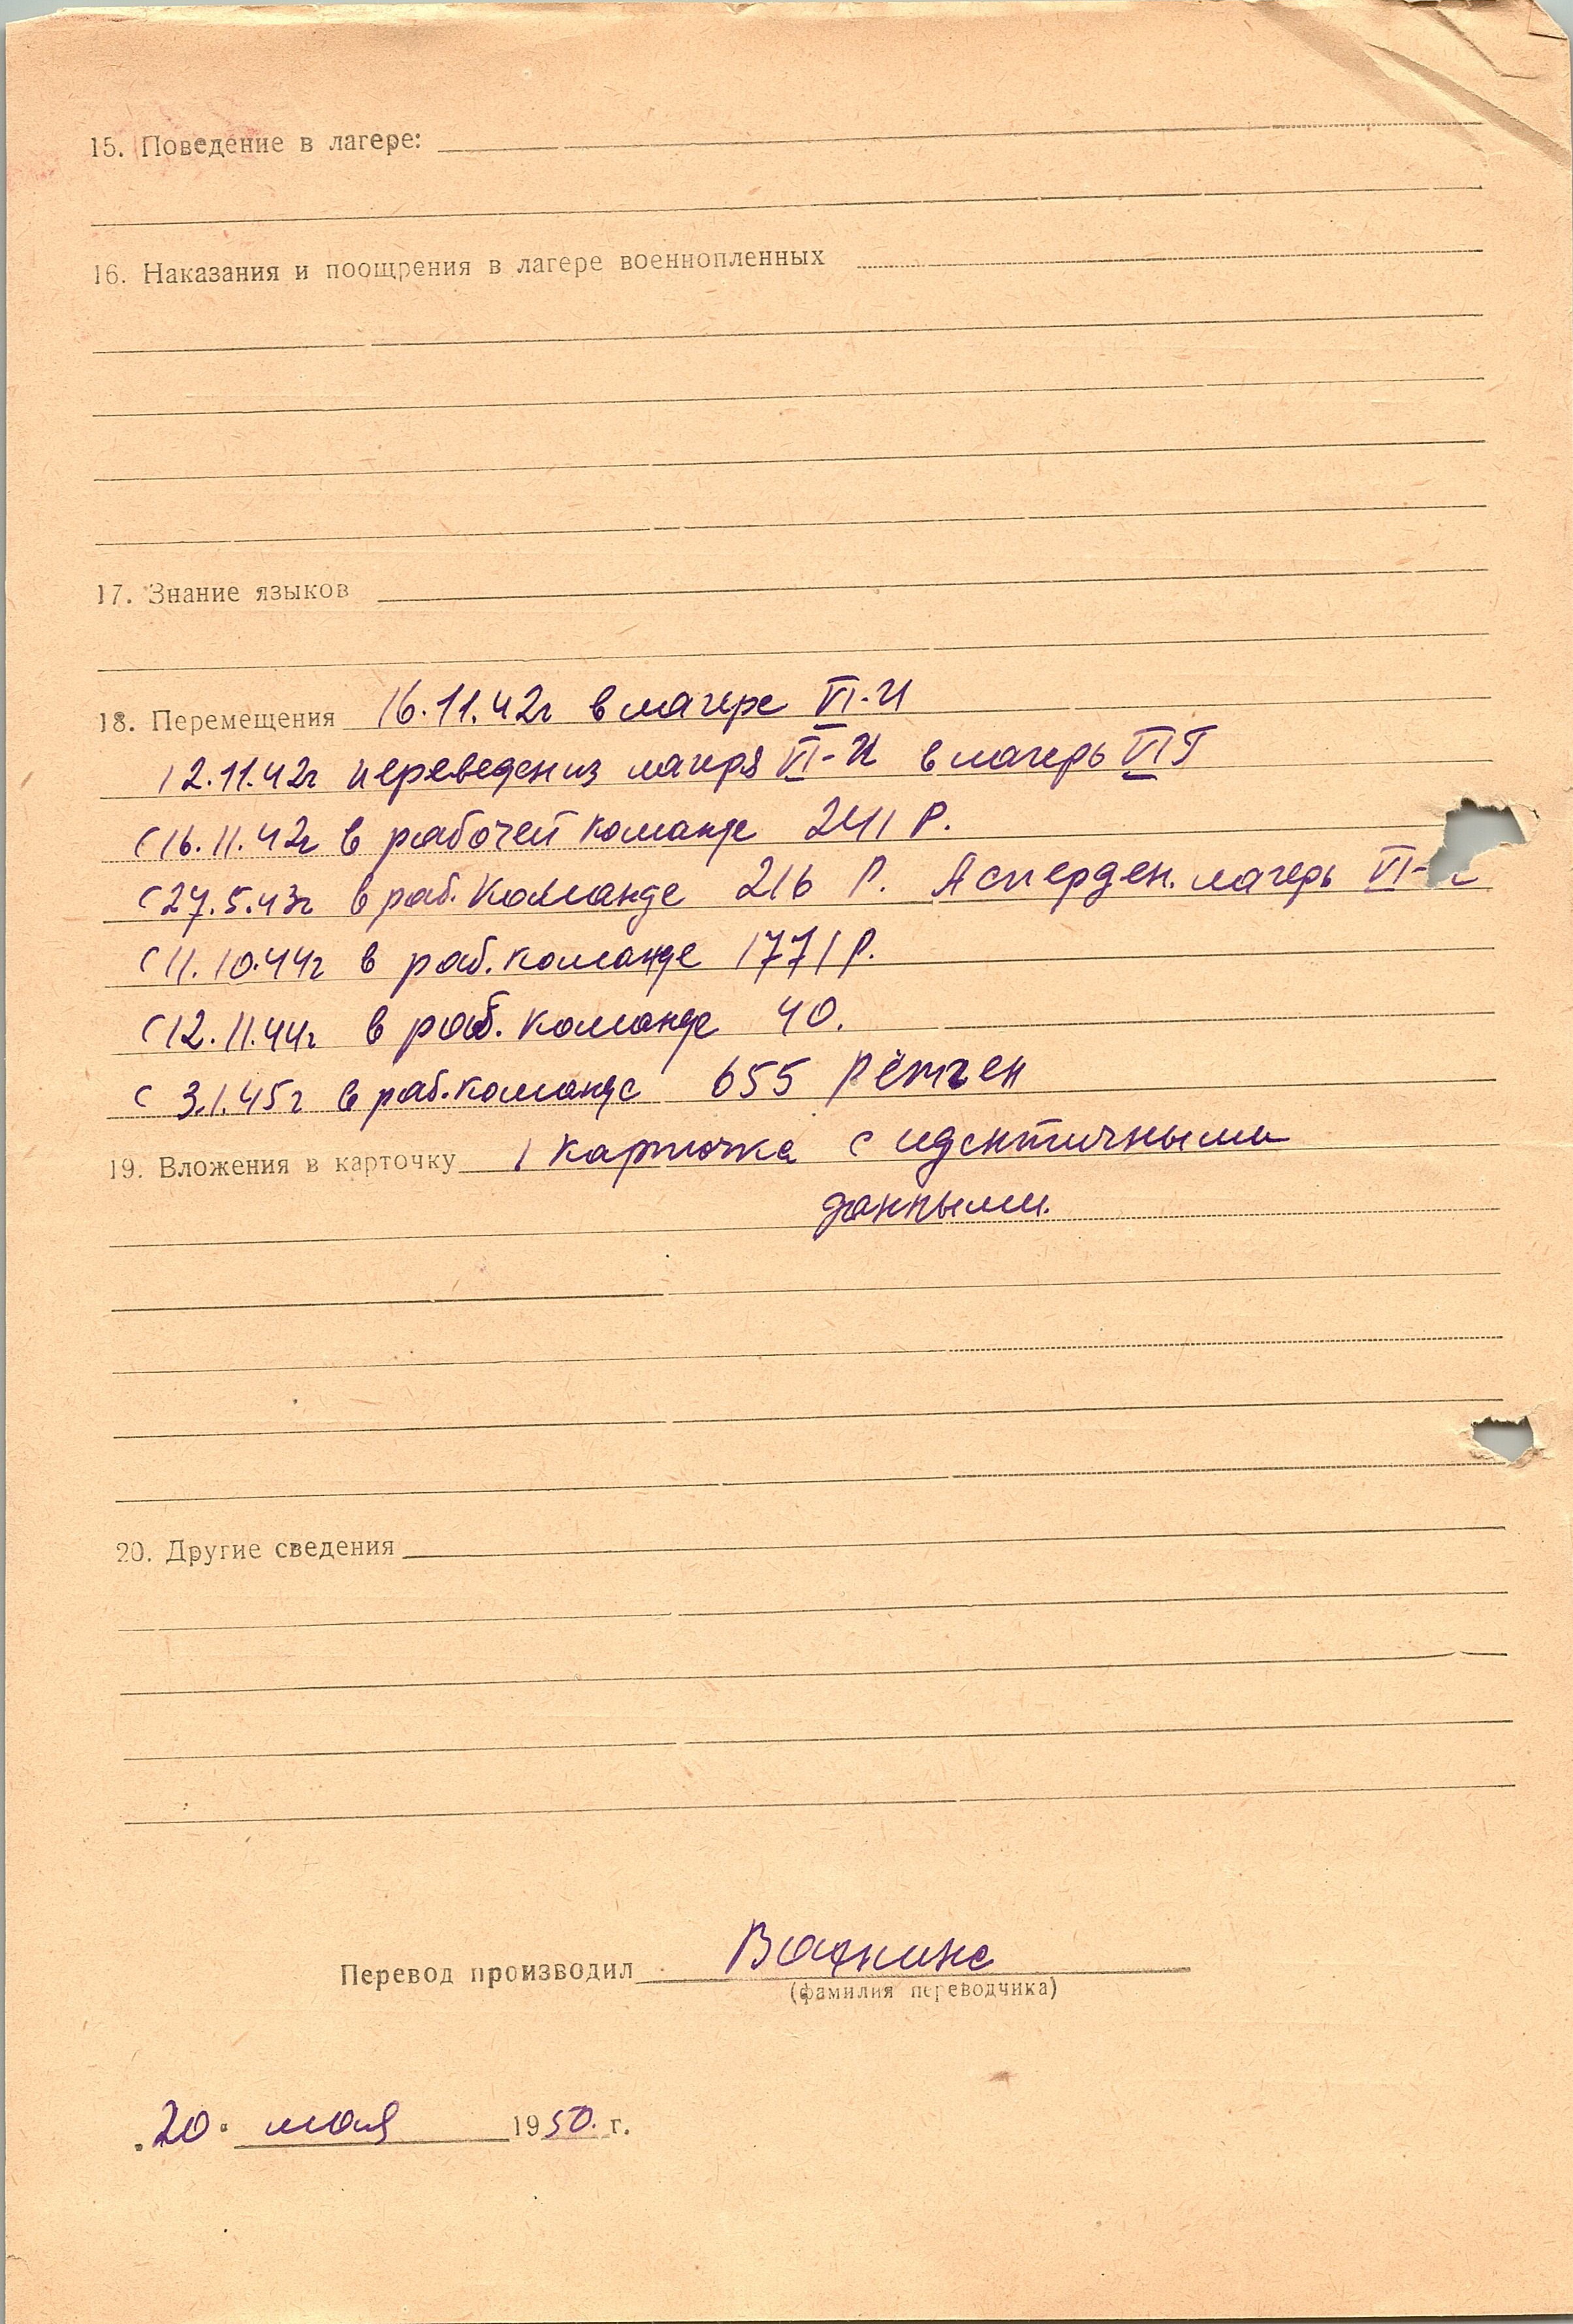 15. Поведение в лагере:
16. Наказания и поощрения в лагере военнопленных
17. Знание языков
18. Перемещения 16.11.42г в лагере VI-И
12.11.42г переведен из лагеря VI-И в лагерь VI Г
с 16.11.42г в рабочей команде 241 Р.
с 27.5.43г в раб. команде 216 Р. Асперден. лагерь VI-
с 11.10.44г в раб. команде 1771 Р.
с 12.11.44г в раб. команде 40.
с 3.1.45г в раб. команде 655 Рётген
19. Вложения в карточку 1 карточка с идентичными
данными.
20. Другие сведения
Перевод производил
(фамилия переводчика)
"20" мая 1950. г.